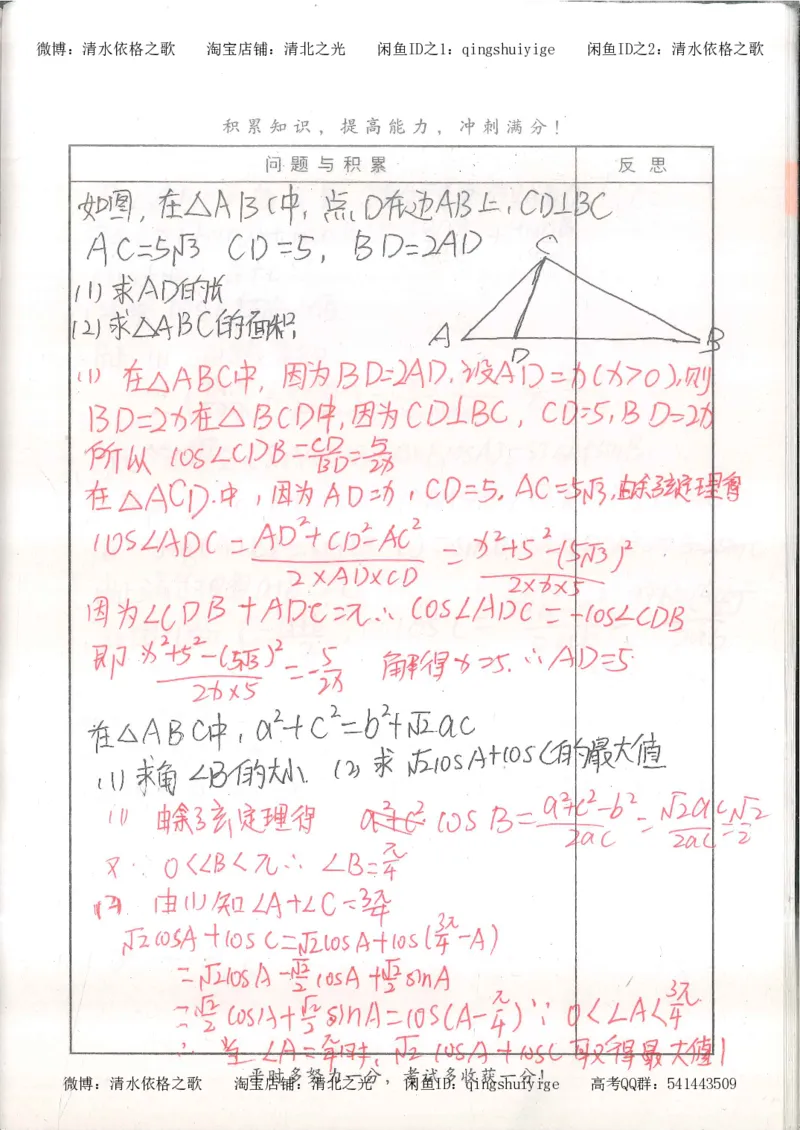 微博：清水依格之歌 淘宝店铺：清北之光 闲鱼ID之1：qingshuiyige 闲鱼ID之2：清水依格之歌
积累知识，提高能力，冲刺满分！
问题与积累 反思
如图，在△ABC中，点D在边AB上，CD⊥BC
AC=5√3 CD=5，BD=2AD
(1)求AD的长
(2)求△ABC的面积
C
A D B
(1) 在△ABC中，因为BD=2AD，设AD=x(x>0)，则
BD=2x在△BCD中，因为CD⊥BC，CD=5，BD=2x
所以 cos∠CDB=CD/BD=5/2x
在△ACD中，因为AD=x，CD=5，AC=5√3，由余弦定理得
cos∠ADC=(AD²+CD²-AC²)/(2×AD×CD)=(x²+5²-(5√3)²)/(2×x×5)
因为∠CDB+ADC=π∴cos∠ADC=-cos∠CDB
即 (x²+5²-(5√3)²)/(2x×5)=-5/2x 解得x=5.∴AD=5
在△ABC中，a²+c²=b²+√2ac
(1)求角∠B的大小 (2)求√2cosA+cosC的最大值
(1) 由余弦定理得 cosB=(a²+c²-b²)/2ac=√2ac/2ac=√2/2
又∵0<∠B<π∴∠B=π/4
(2) 由(1)知∠A+∠C=3π/4
√2cosA+cosC=√2cosA+cos(3π/4-A)
=√2cosA-√2/2cosA+√2/2sinA
=√2/2cosA+√2/2sinA=cos(A-π/4)∵0<∠A<3π/4
∴当∠A=π/4时，√2cosA+cosC取得最大值1
平时多努力一分，考试多收获一分！
微博：清水依格之歌 淘宝店铺：清北之光 闲鱼ID：qingshuiyige 高考QQ群：541443509